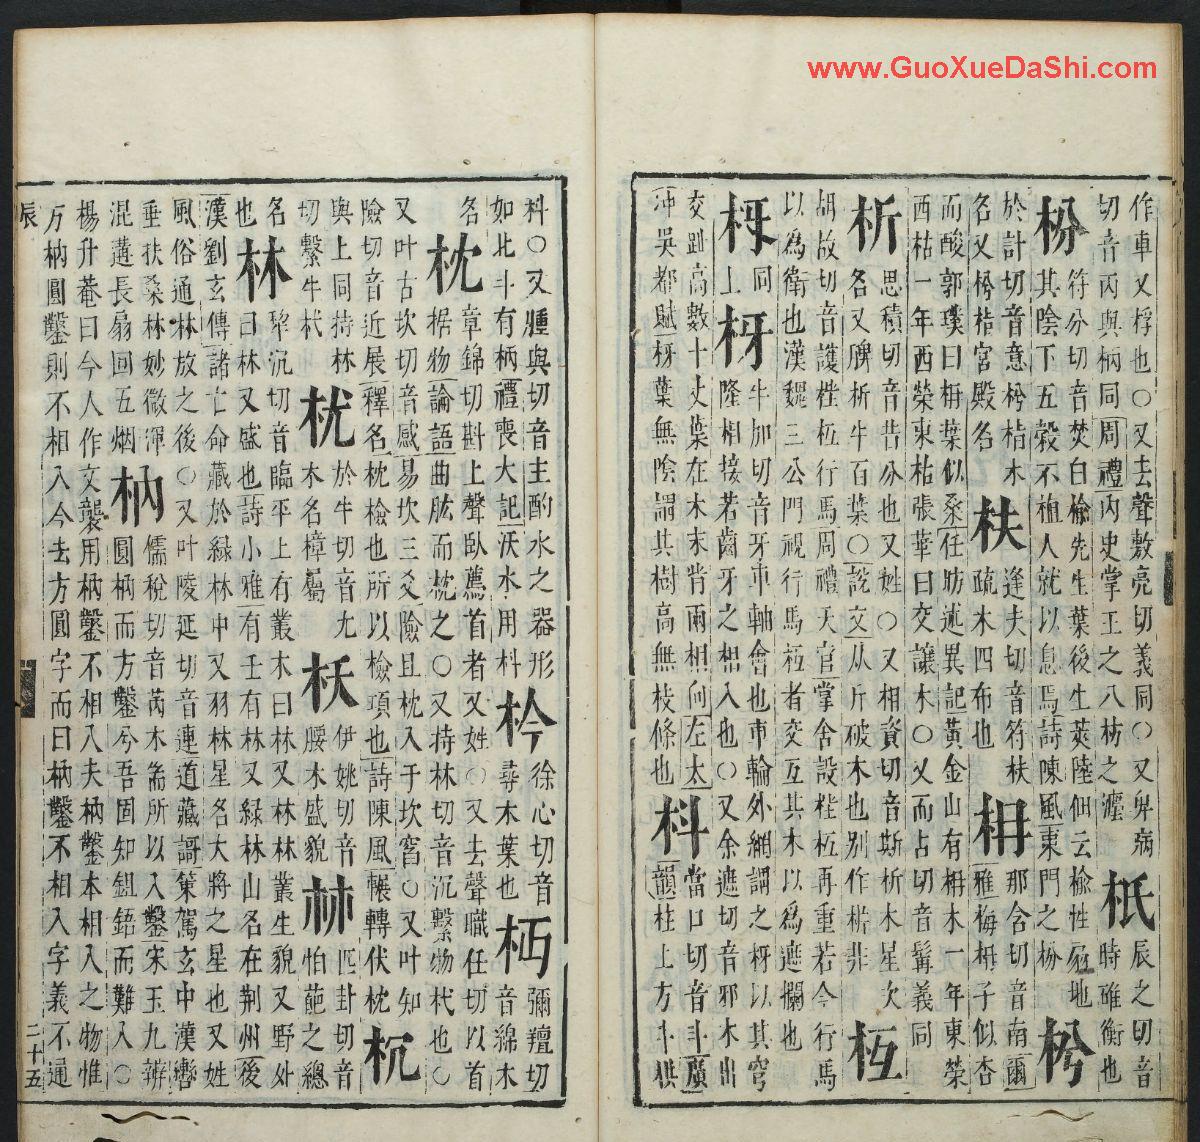 作車又桴也〇又去聲敷亮切義同〇又與病
切音丙與柄同周禮內史掌王之八枋之灋
柢
辰之切音
時碓衡也
枌
符分切音焚白榆先生葉後生莢陸佃云榆性扇地
其陰下五穀不植人就以息焉詩陳風東門之枌
枍
於計切音意枍栺木
名又枍栺宮殿名
枎
逢夫切音符枎
疏木四布也
枏
那含切音南爾
雅梅枏子似杏
而酸郭璞曰枏葉似桑任昉述異記黃金山有枏木一年東榮
西枯一年西榮東枯張華曰交讓木〇又而占切音髯義同
析
思積切音昔分也又姓〇又相資切音斯析木星次
名又脾析牛百葉〇說文从斤破木也別作㭊非
枑
胡故切音護梐枑行馬周禮天官掌舍設梐枑再重若今行馬
以為衛也漢魏三公門視行馬枑者交互其木以為遮攔也
枒
同
上
枒
牛加切音牙車軸會也車輪外網謂之枒以其穹
隆相接若齒牙之相入也〇又余遮切音邪木出
交趾高數十丈葉在木末背雨相向左太
冲吳都賦枒葉無陰謂其樹高無枝條也
枓
當口切音斗廣
韻柱上方斗栱
枓〇又腫與切音主酌水之器形
如北斗有柄禮喪大記沃水用枓
枔
徐心切音
尋木葉也
彌羶切
音綿木
名
枕
章錦切斟上聲臥薦首者又姓〇又去聲職任切以首
据物論語曲肱而枕之〇又持林切音沉繫物杙也〇
又叶古坎切音感易坎三爻險且枕入于坎窞〇又叶知
險切音近展釋名枕檢也所以檢項也詩陳風輾轉伏枕
與上同持林
切繫牛杙
於牛切音尤
木名樟屬
枖
伊姚切音
腰木盛貌
𣏟
匹卦切音
怕葩之總
名
也
林
犂沉切音臨平土有叢木曰林又林林叢生貌又野外
曰林又盛也詩小雅有壬有林又綠林山名在荆州後
漢劉玄傳諸亡命藏於綠林中又羽林星名大將之星也又姓
風俗通林放之後〇又叶陵延切音連道藏謌策駕玄中漢轡
垂扶桑林妙微渾
混邁長扇回五烟
枘
儒稅切音芮木耑所以入鑿宋玉九辨
圓枘而方鑿兮吾固知鉏鋙而難入〇
楊升菴曰今人作文襲用枘鑿不相入夫枘鑿本相入之物惟
方枘圓鑿則不相入今去方圓字而曰枘鑿不相入字義不通
辰
二十五
www.GuoXueDaShi.com